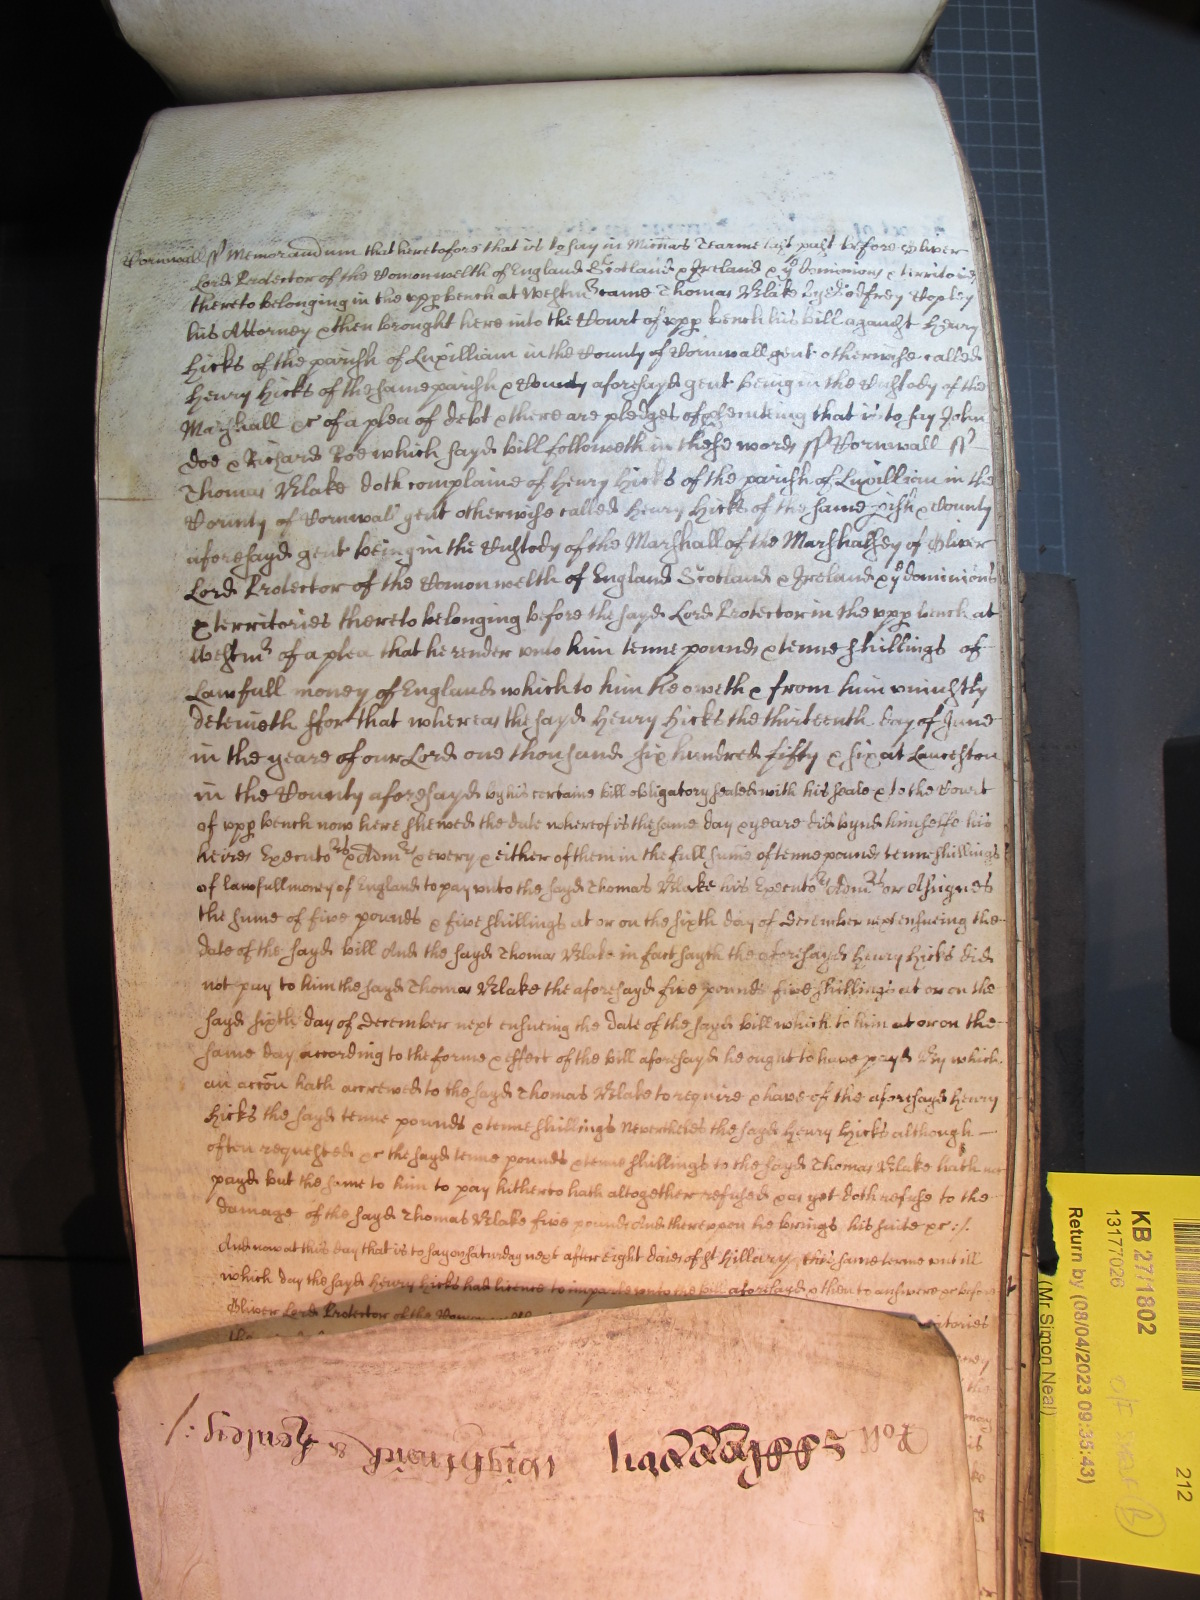 Cornwall ss Memorandum that heretofore that is to say in Michas Tearme last past before Oliver
Lord Protector of the Comonwelth of England Scotland & Ireland & ye dominions & territories
thereto belonging in the upp bench at Westmr came Thomas Blake by Godfrey Copley
his Attorney & then brought here into the Court of upp bench his bill against Henry
Hicks of the parish of Luxillian in the County of Cornwall gent otherwise called
Henry Hicks of the same parish & County aforesayd gent being in the Custody of the
Marshall &c of a plea of debt & there are pledges of psecuteing that is to say John
Doe & Richard Roe which sayd bill followeth in these words ss Cornwall ss
Thomas Blake doth complaine of Henry Hicks of the parish of Luxillian in the
County of Cornwall gent otherwise called Henry Hicks of the same pish & County
aforesayd gent being in the Custody of the Marshall of the Marshalsey of Oliver
Lord Protector of the Comonwelth of England Scotland & Ireland & ye dominions
& territories thereto belonging before the sayd Lord Protector in the upp bench at
Westmr of a plea that he render unto him tenne pounds & tenne shillings of
Lawfull money of England which to him he oweth & from him uniustly
deteineth ffor that whereas the sayd Henry Hicks the thirteenth day of June
in the yeare of our Lord one thousand six hundred fifty & six at Lanceston
in the County aforesayd by his certaine bill obligatory sealed with his seale & to the Court
of upp bench now here shewed the date whereof is the same day & yeare did bynd himselfe his
heires Executors & Admrs & every & either of them in the full sume of tenne pounds tenne shillings
of lawfull money of England to pay unto the sayd Thomas Blake his Executors Admrs or Assignes
the sume of five pounds & five shillings at or on the sixth day of December next ensueing the
date of the sayd bill And the sayd Thomas Blake in fact sayth the aforesayd Henry Hicks did
not pay to him the sayd Thomas Blake the aforesayd five pounds five shillings at or on the
sayd sixth day of December next ensueing the date of the sayd bill which to him at or on the
same day according to the forme & effect of the bill aforesayd he ought to have payd By which
an accon hath accrewed to the sayd Thomas Blake to require & have of the aforesayd Henry
Hicks the sayd tenne pounds & tenne shillings Neverthelés the sayd Henry Hicks although
often requested &c the sayd tenne pounds & tenne shillings to the sayd Thomas Blake hath not
payd but the same to him to pay hitherto hath altogether refused & as yet doth refuse to the
damage of the sayd Thomas Blake five pounds And thereupon he brings his suite &c :/.
And now at this day that is to say on Saturday next after eight daies of St Hillary this same terme untill
which day the sayd Henry Hicks had licence to imparle unto the bill aforesayd & then to answere &c before
Oliver Lord Protector of the
Roll
Wightwick & Penley :/
KB 27/1802
13177026
Return by (08/04/2023 09:35:43)
(Mr Simon Neal)
212